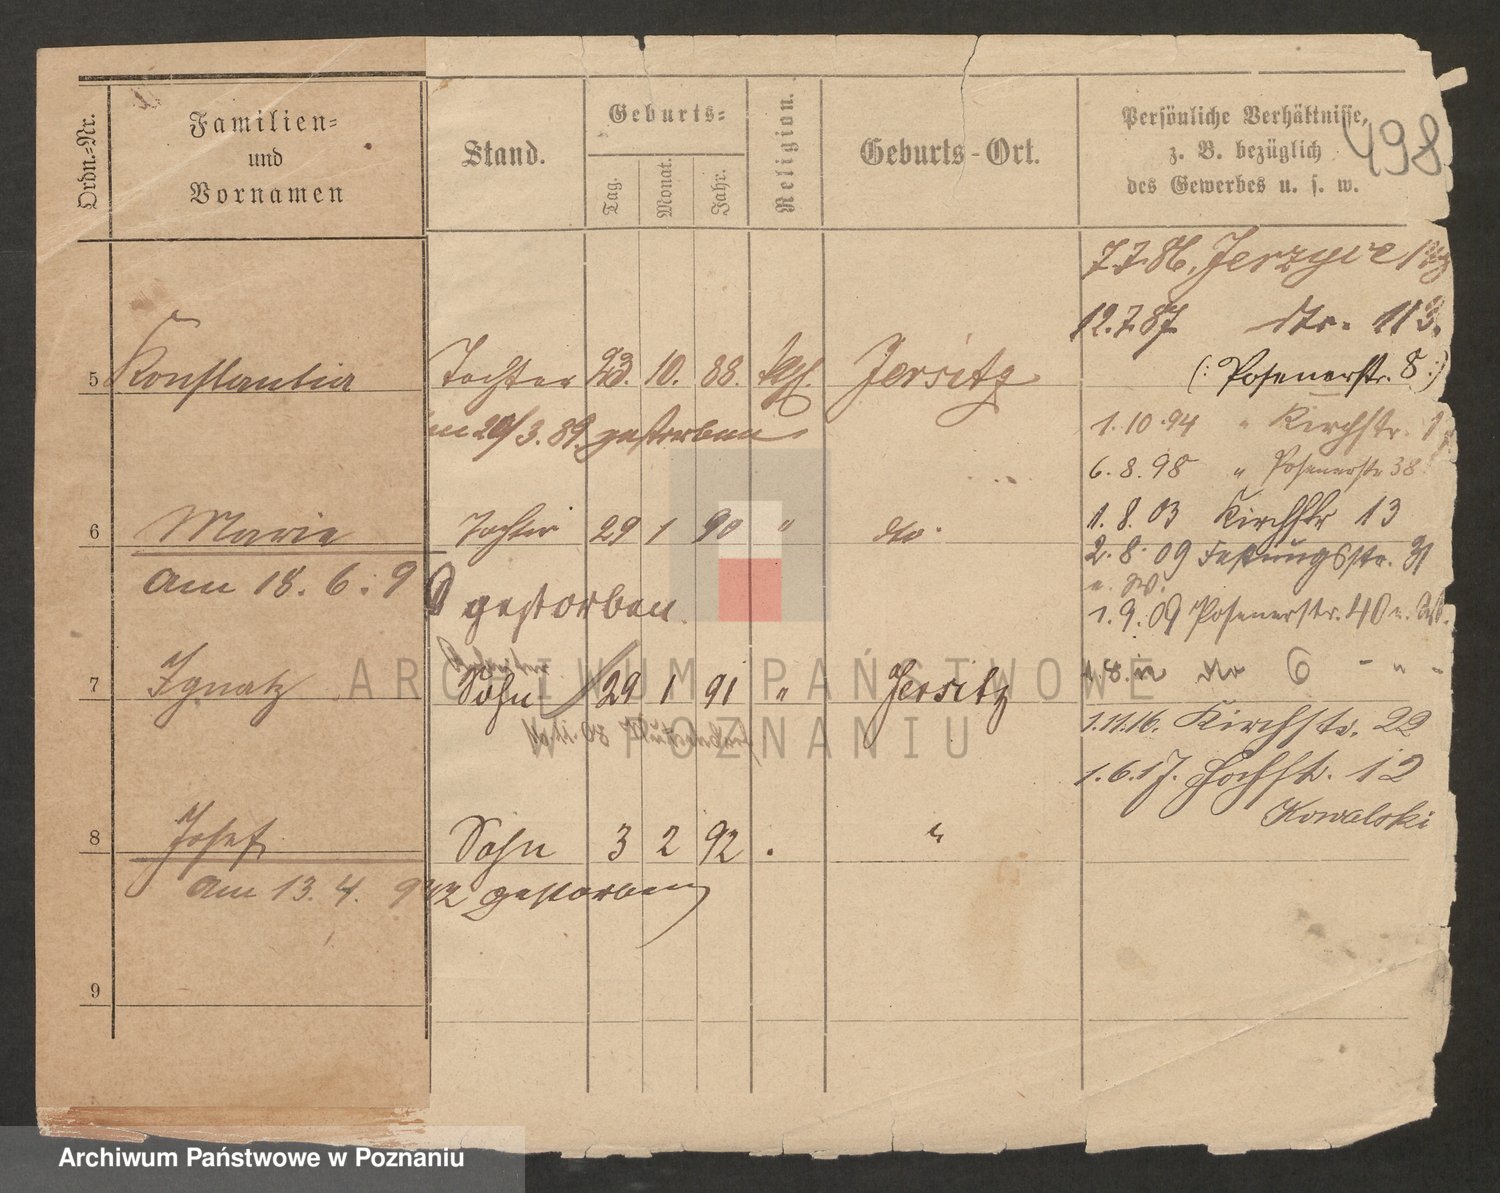 498
Ordn.-Nr.
Familien-
und
Vornamen
Stand.
Geburts-
Tag.
Monat.
Jahr.
Religion.
Geburts-Ort.
Persönliche Verhältnisse,
z. B. bezüglich
des Gewerbes u. s. w.
7.7.86. Jerzyce
12.7.87 dto. 113.
5 Konstantia Tochter 23. 10. 88. kath. Jersitz
(: Posenerstr. 8 :)
am 20/3. 89. gestorben
1.10.94 " Kirchstr.
6.8.98 " Posenerstr 38
6 Marie Tochter 29 1 90 " dto.
1.8.03 Kirchstr 13
2.8.09 Festungsstr. 31
am 18. 6. 90 gestorben
1.9.09 Posenerstr. 40
7 Ignatz Sohn 29 1 91 " Jersitz
dto 6 - " -
1.11.16. Kirchstr. 22
1.6.17. Hochstr. 12
Kowalski
8 Josef Sohn 3 2 92 . "
am 13. 4. 92 gestorben
9
ARCHIWUM PAŃSTWOWE
W POZNANIU
Archiwum Państwowe w Poznaniu